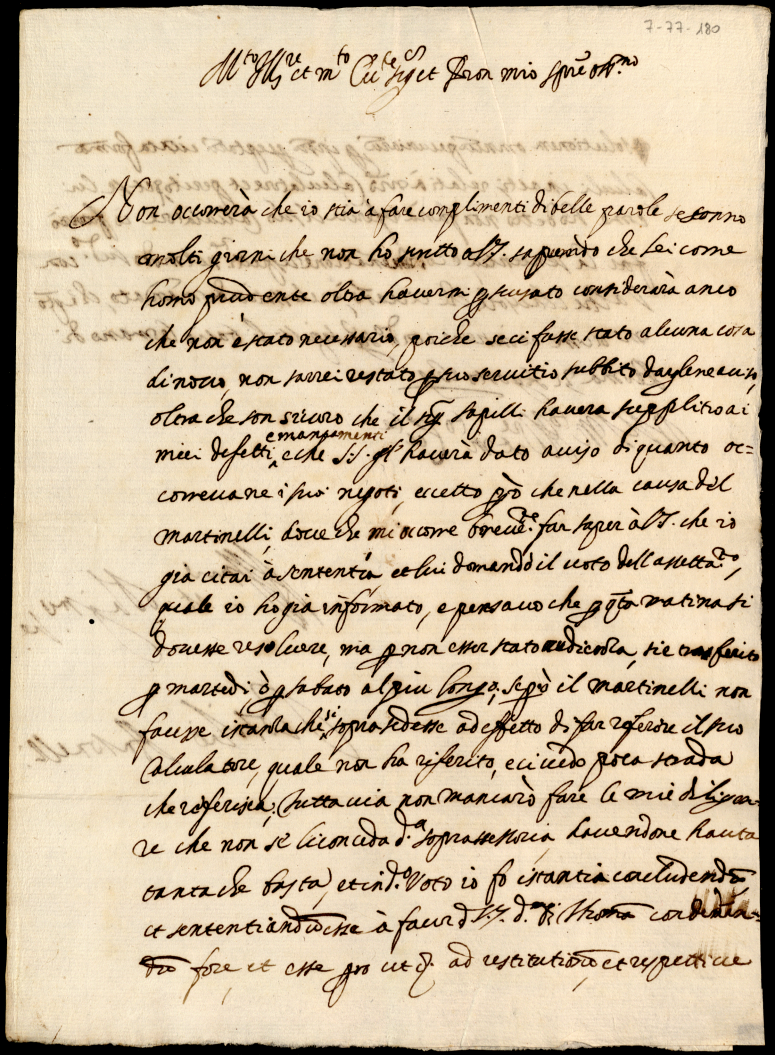 7-77-180
M.to Ill.re et m.to Ecc.te sig.r et Pron mio sp.re oss.mo
Non occorrerà che io stia a fare complimenti di belle parole se sonno
molti giorni che non ho scritto a V.S. sapendo che lei come
homo prudente oltra havermi p scusato considerarà anco
che non è stato necessario, poiche se ci fusse stato alcuna cosa
di novo, non sarrei restato p suo servitio subbito dargliene aviso,
oltra che son sicuro che il sig.r sapilli haverà supplito ai
miei defetti, e mancamenti e che S.S. gl' haverà dato aviso di quanto oc=
correva ne i suoi negoti, eccetto però che nella causa del
Martinelli, dove che mi occorre breve.te far saper à V.S. che io
gia citai à sententia et lui domandò il voto dell assetta.to,
quale io ho gia informato, e pensavo che p q.ta matina si
dovesse resolvere, ma p non esser stato, si è trasferito
p martedi ò p sabato al piu longo, se però il Martinelli non
facesse istantia che si soprasedesse ad effetto di far referire il suo
Calculatore, quale non ha riferito, e ci vedo poca strada
che referisca; Tuttavia non mancarò fare le mie diligen=
re che non se li conceda d.a soprassessoria, havendone hauta
tanta che basta, et in d.o Voto io fo istantia concludendũ
et sententiandũ esse à favor d V.S. d. Thoma condemnan=
dũ fore, et esse pro ut ad restitutionẽ, et respettive